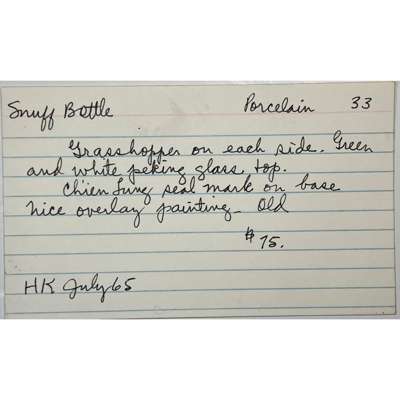 Snuff Bottle Porcelain 33
Grasshopper on each side. Green
and white peking glass top.
Chien Lung seal mark on base
nice overlay painting - Old
$75.
HK July 65